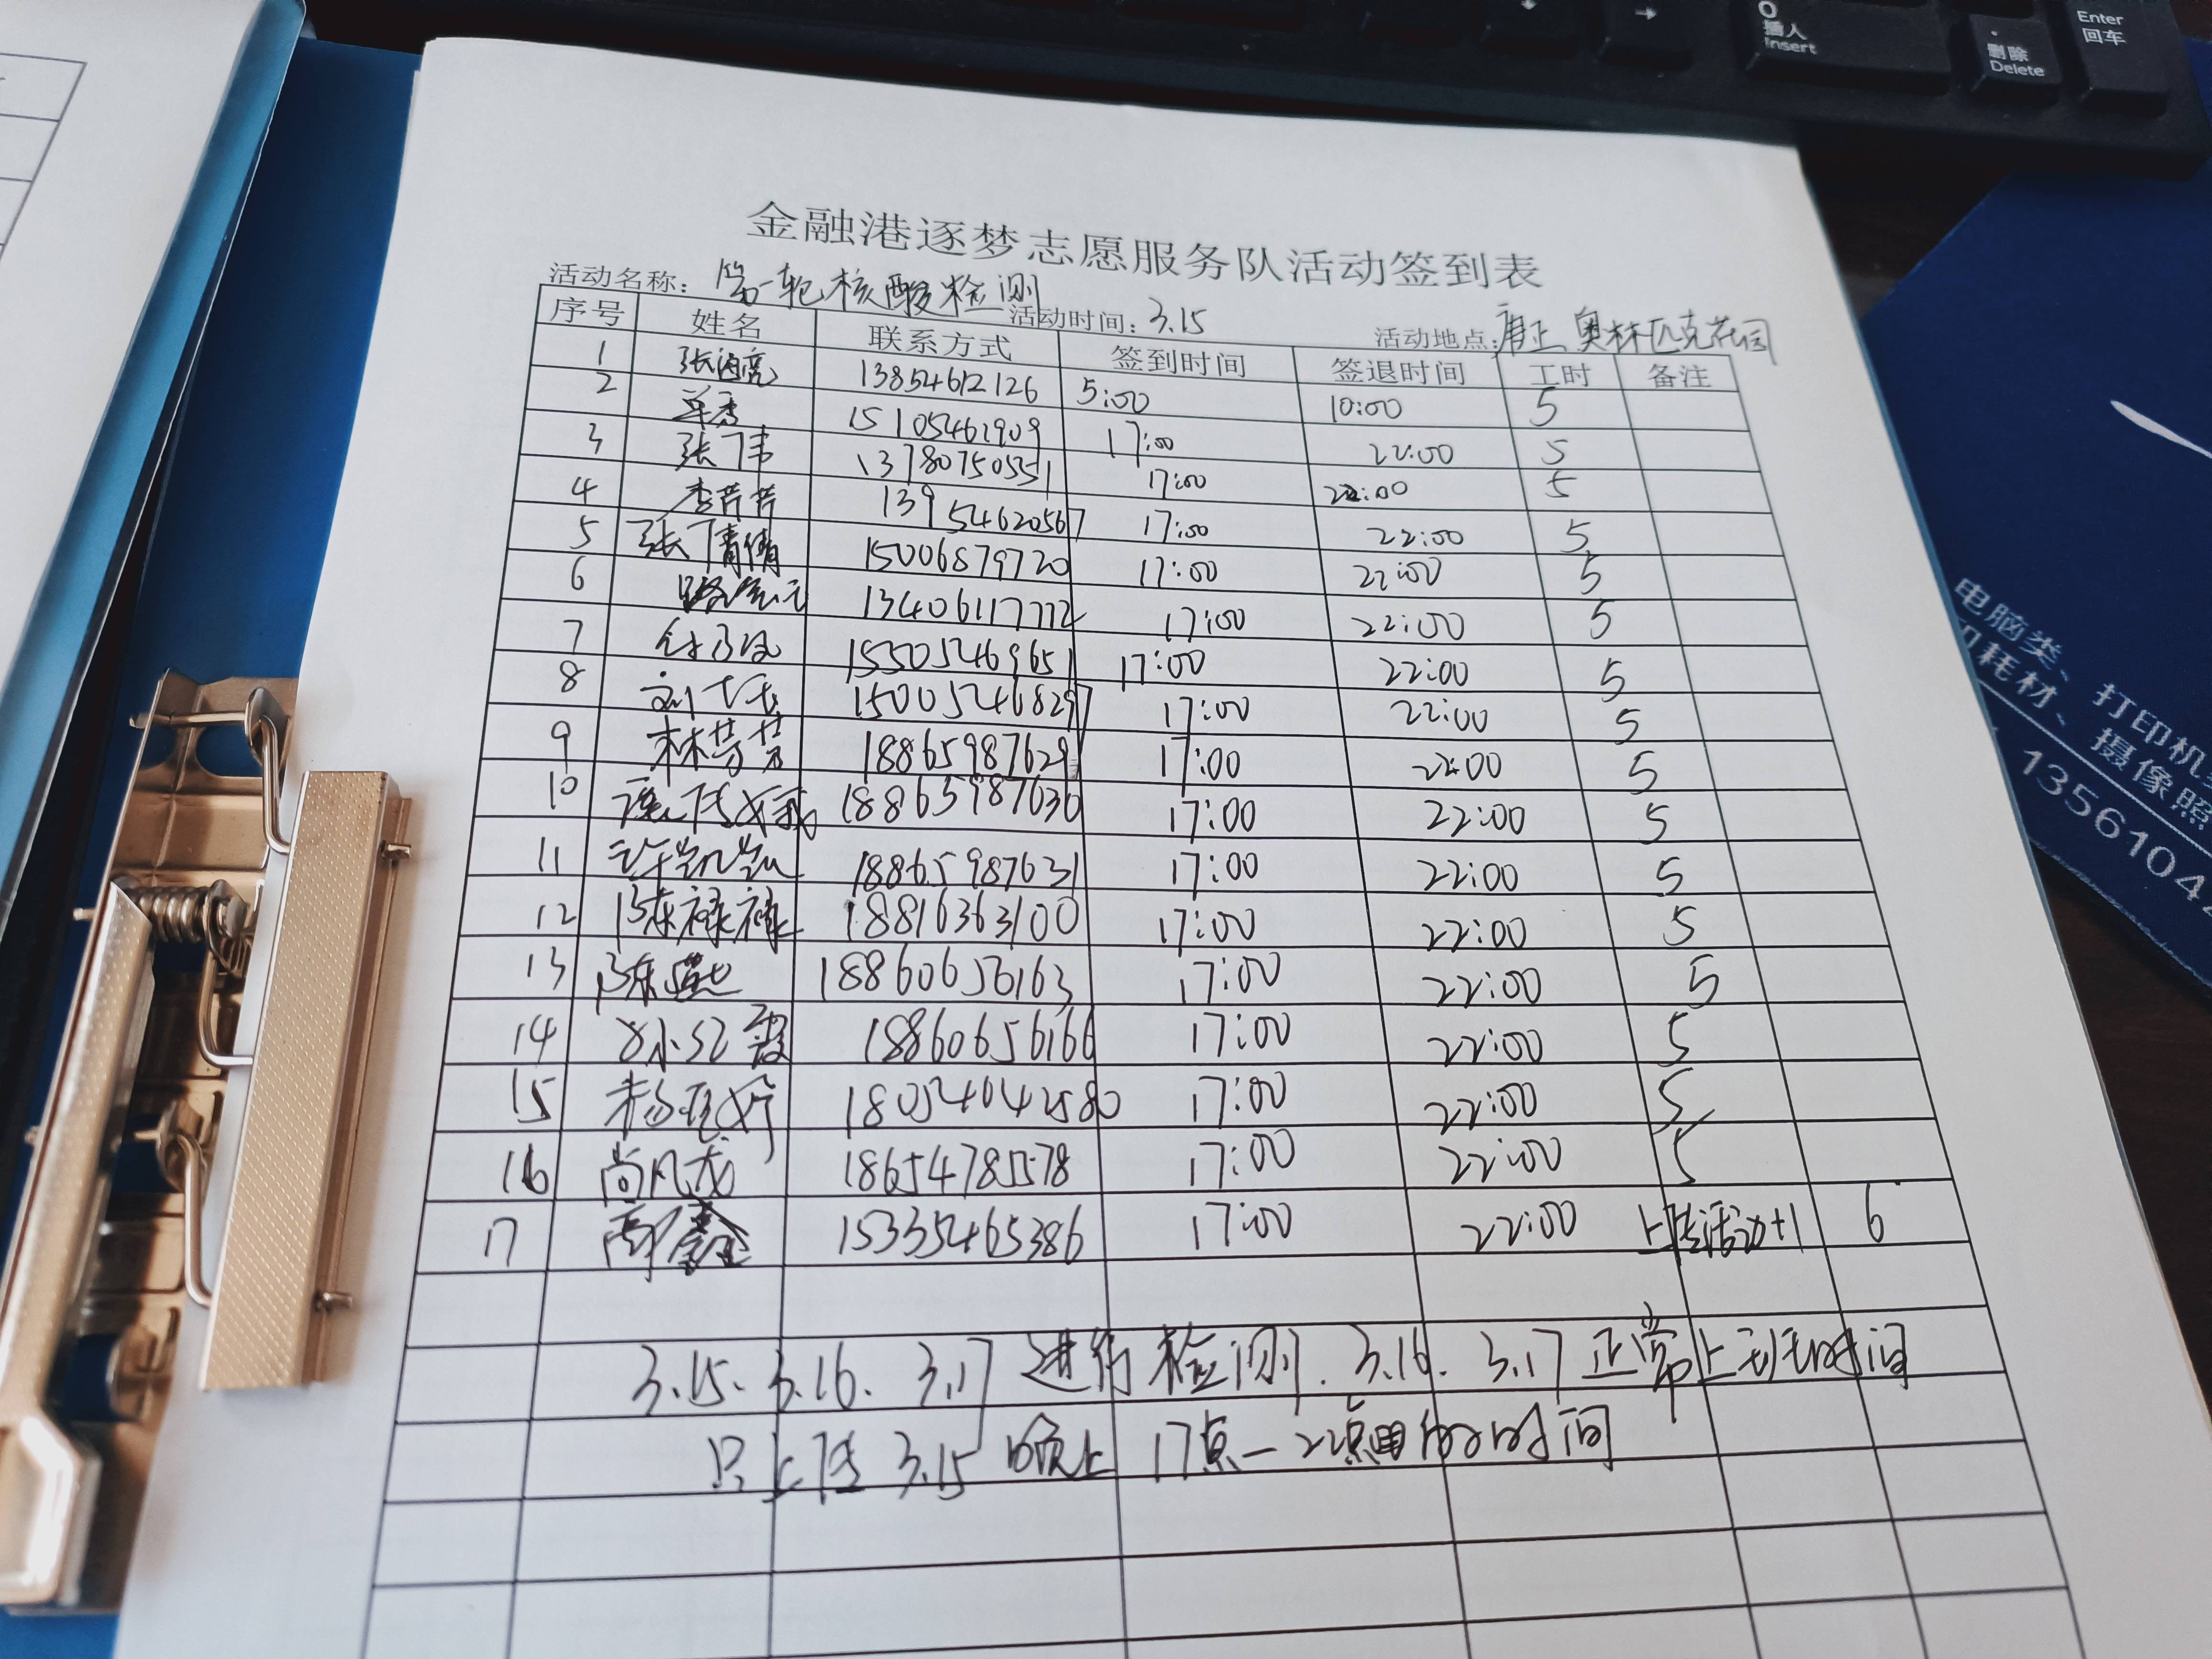 O
插入
Insert
.
删除
Delete
Enter
回车
金融港逐梦志愿服务队活动签到表
活动名称：第一轮核酸检测 活动时间：3.15 活动地点：康上奥林匹克花园
序号 姓名 联系方式 签到时间 签退时间 工时 备注
1 张海亮 13854612126 5:00 10:00 5
2 单秀 15105461909 17:00 22:00 5
3 张伟 13780750551 17:00 22:00 5
4 李芹芹 13954620567 17:00 22:00 5
5 张倩倩 15006879720 17:00 22:00 5
6 13406117772 17:00 22:00 5
7 15505469651 17:00 22:00 5
8 15005468297 17:00 22:00 5
9 林芳芳 18865987629 17:00 22:00 5
10 18865987630 17:00 22:00 5
11 许凯凯 18865987631 17:00 22:00 5
12 陈禄禄 18816363100 17:00 22:00 5
13 陈燕 18860656163 17:00 22:00 5
14 18860656166 17:00 22:00 5
15 18054042580 17:00 22:00 5
16 尚凡龙 18654785578 17:00 22:00 5
17 高鑫 15335465386 17:00 22:00 上传活动+1 6
3.15.3.16.3.17进行检测.3.16.3.17正常上传时间
只上传3.15晚上17点-22点的时间
电脑类、打印机
印耗材、摄像照
1356104